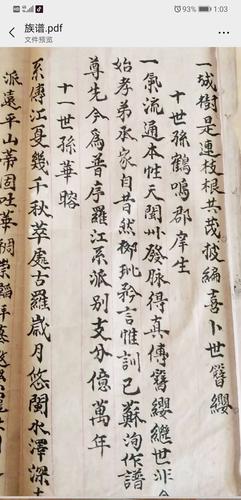 93%
1:03
族谱.pdf
文件预览
一城樹是連枝根共茂披編喜卜世簪纓
十世孫鶴鳴郡庠生
一氣流通本性天閩州發脉得真傳簪纓繼世非
始孝弟承家自昔然柳玭矜言惟訓已蘇洵作譜
尊先今為普序羅江系派別支分億萬年
十一世孫華
系傳江夏幾千秋萃處古羅歲月悠閩水澤深
派遠平山帝固吐華稠崇